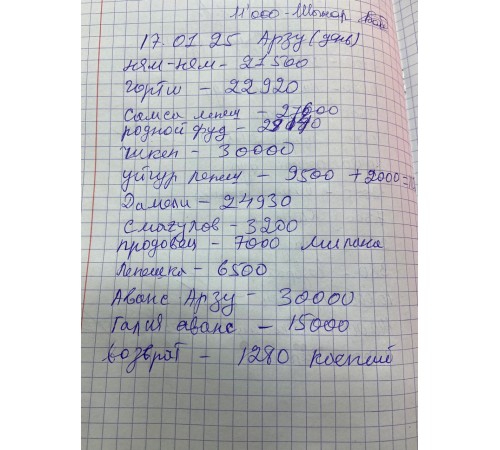 11'000 - Шынар
17.01.25 Арзу (день)
ням-ням - 21500
гортш - 22920
Самса лепеш - 27000
родной фуд -
чикен - 30000
уйгур лепеш - 9500 + 2000 =
Дамели - 24930
Смагулов - 3200
продовец - 7000 Милана
Лепешка - 6500
Аванс Арзу - 30000
Галия аванс - 15000
возврат - 1280 коспий